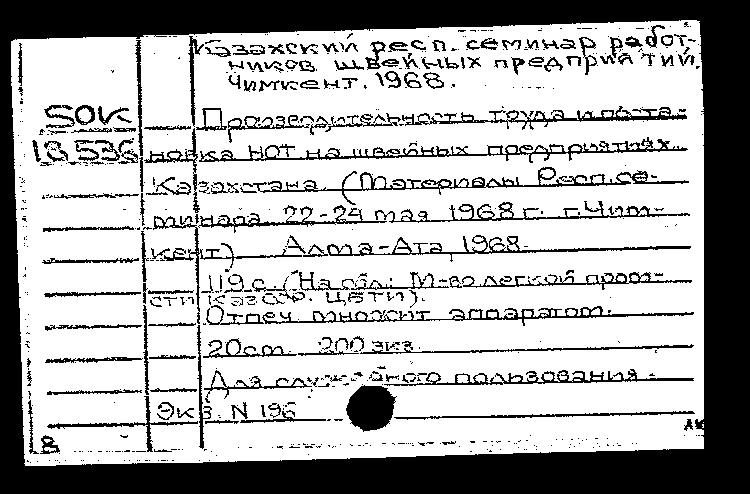 Казахский респ. семинар работ-
ников швейных предприятий.
Чимкент. 1968.
SOK Производительность труда и поста-
18.536 новка НОТ на швейных предприятиях
Казахстана. (Материалы Респ. се-
минара 22-24 мая 1968 г. г. Чим-
кент). Алма-Ата, 1968.
119 с. (На обл.: М-во легкой пром-
сти КазССР. ЦБТИ).
Отпеч. множит. аппаратом.
20 cm. 200 экз.
Для служебного пользования.
Экз. N 196
8